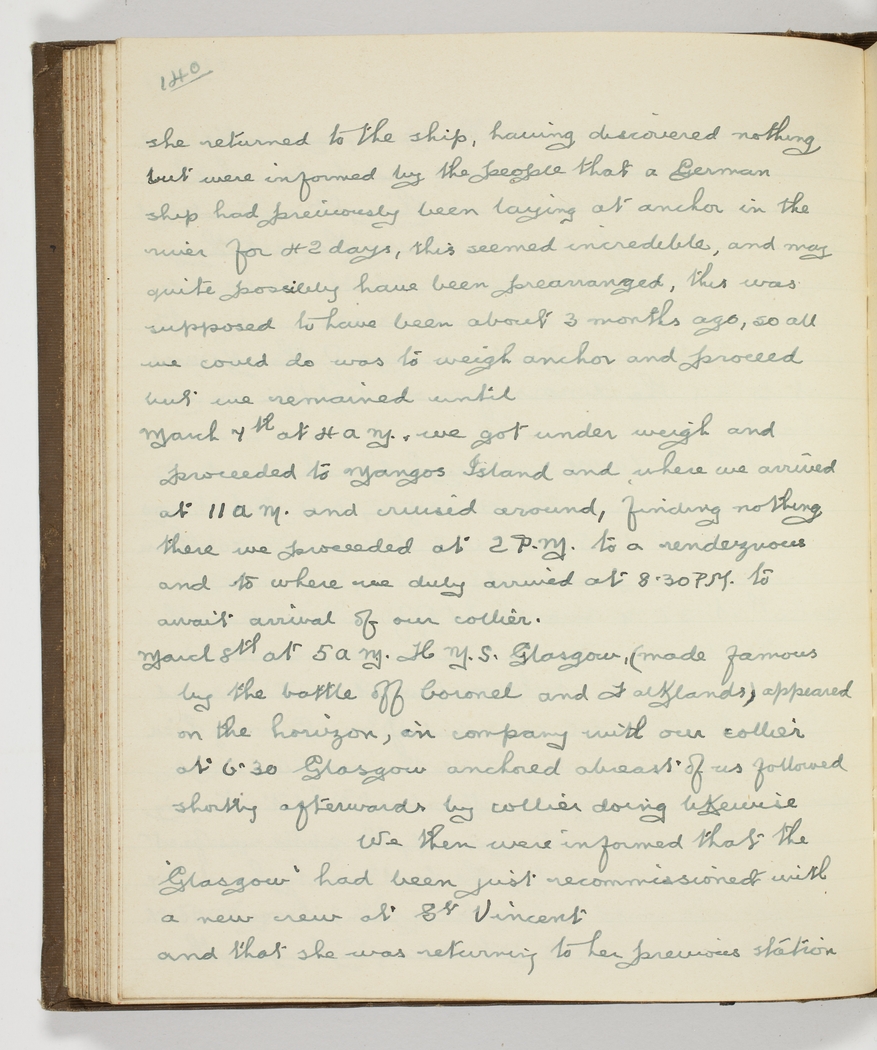 140
she returned to the ship, having discovered nothing
but were informed by the people that a German
ship had previously been laying at anchor in the
river for 42 days, this seemed incredible, and may
quite possibly have been prearranged, this was
supposed to have been about 3 months ago, so all
we could do was to weigh anchor and proceed
but we remained until
March 7th at 4 a m. we got under weigh and
proceeded to Mangos Island and where we arrived
at 11 a m. and cruised around, finding nothing
there we proceeded at 2 P.M. to a rendezvous
and to where we duly arrived at 8·30 PM. to
await arrival of our collier.
March 8th at 5 a m. H M.S. Glasgow, (made famous
by the battle off Coronel and Falklands) appeared
on the horizon, in company with our collier
at 6·30 Glasgow anchored abreast of us followed
shortly afterwards by collier doing likewise
We then were informed that the
'Glasgow' had been just recommissioned with
a new crew at St Vincent
and that she was returning to her previous station